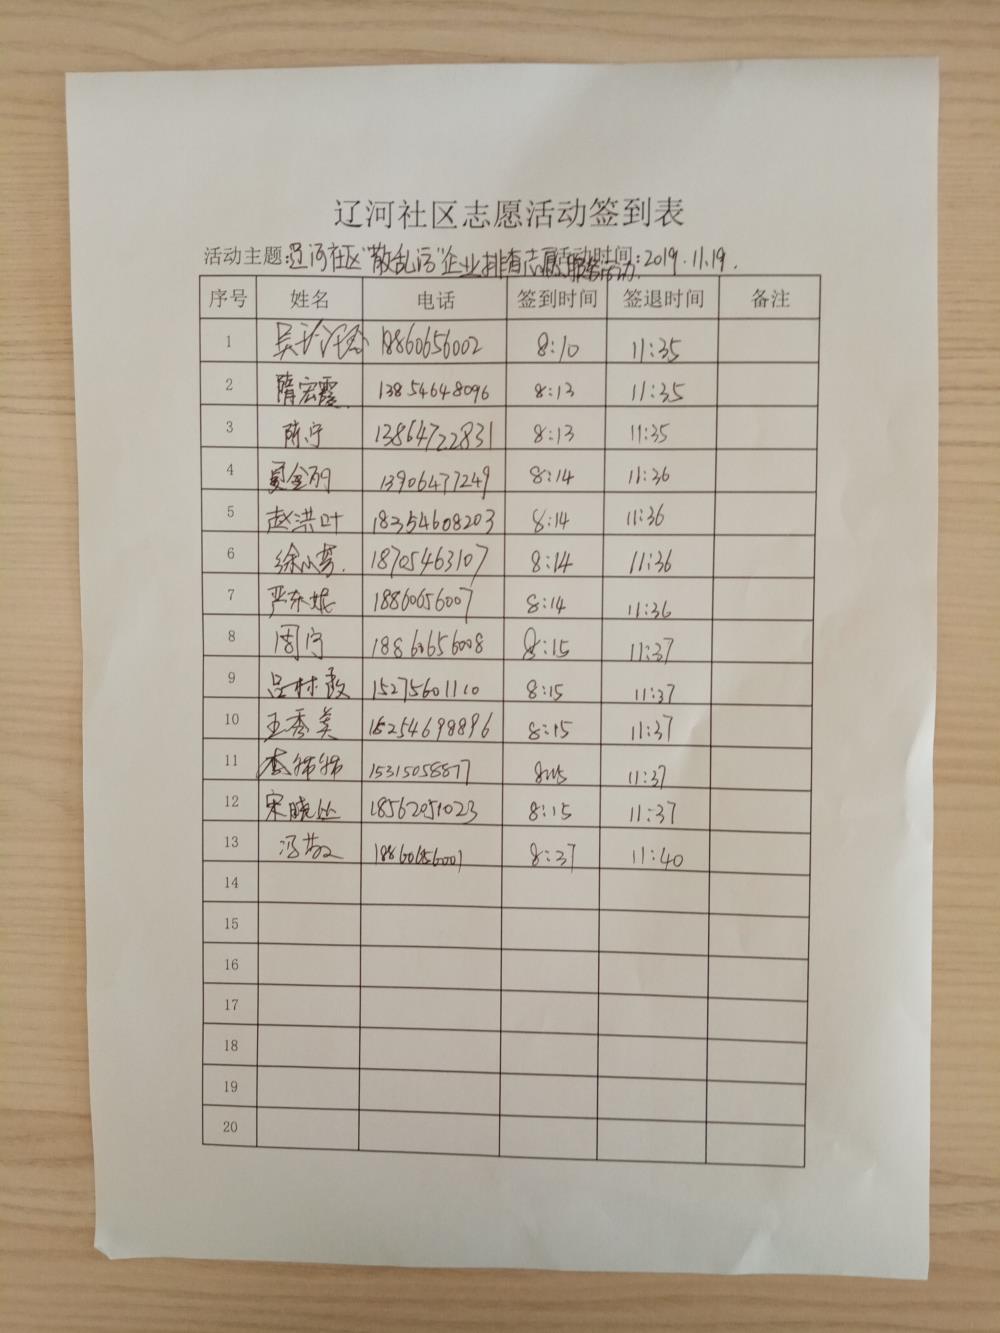 辽河社区志愿活动签到表
活动主题:辽河社区"散乱污"企业排查志愿服务活动 活动时间:2019.11.19.
序号 姓名 电话 签到时间 签退时间 备注
1 18860656002 8:10 11:35
2 隋宏霞 13854648096 8:13 11:35
3 陈宁 13864722831 8:13 11:35
4 夏金丽 13906477249 8:14 11:36
5 赵洪叶 18354608203 8:14 11:36
6 徐小梦. 18705463107 8:14 11:36
7 严东妮 18860656007 8:14 11:36
8 周宁 18860656008 8:15 11:37
9 吕林敬 15275601110 8:15 11:37
10 王秀美 15254698896 8:15 11:37
11 李师师 15315058877 8:15 11:37
12 宋晓丛 18562051023 8:15 11:37
13 18860656001 8:37 11:40
14
15
16
17
18
19
20